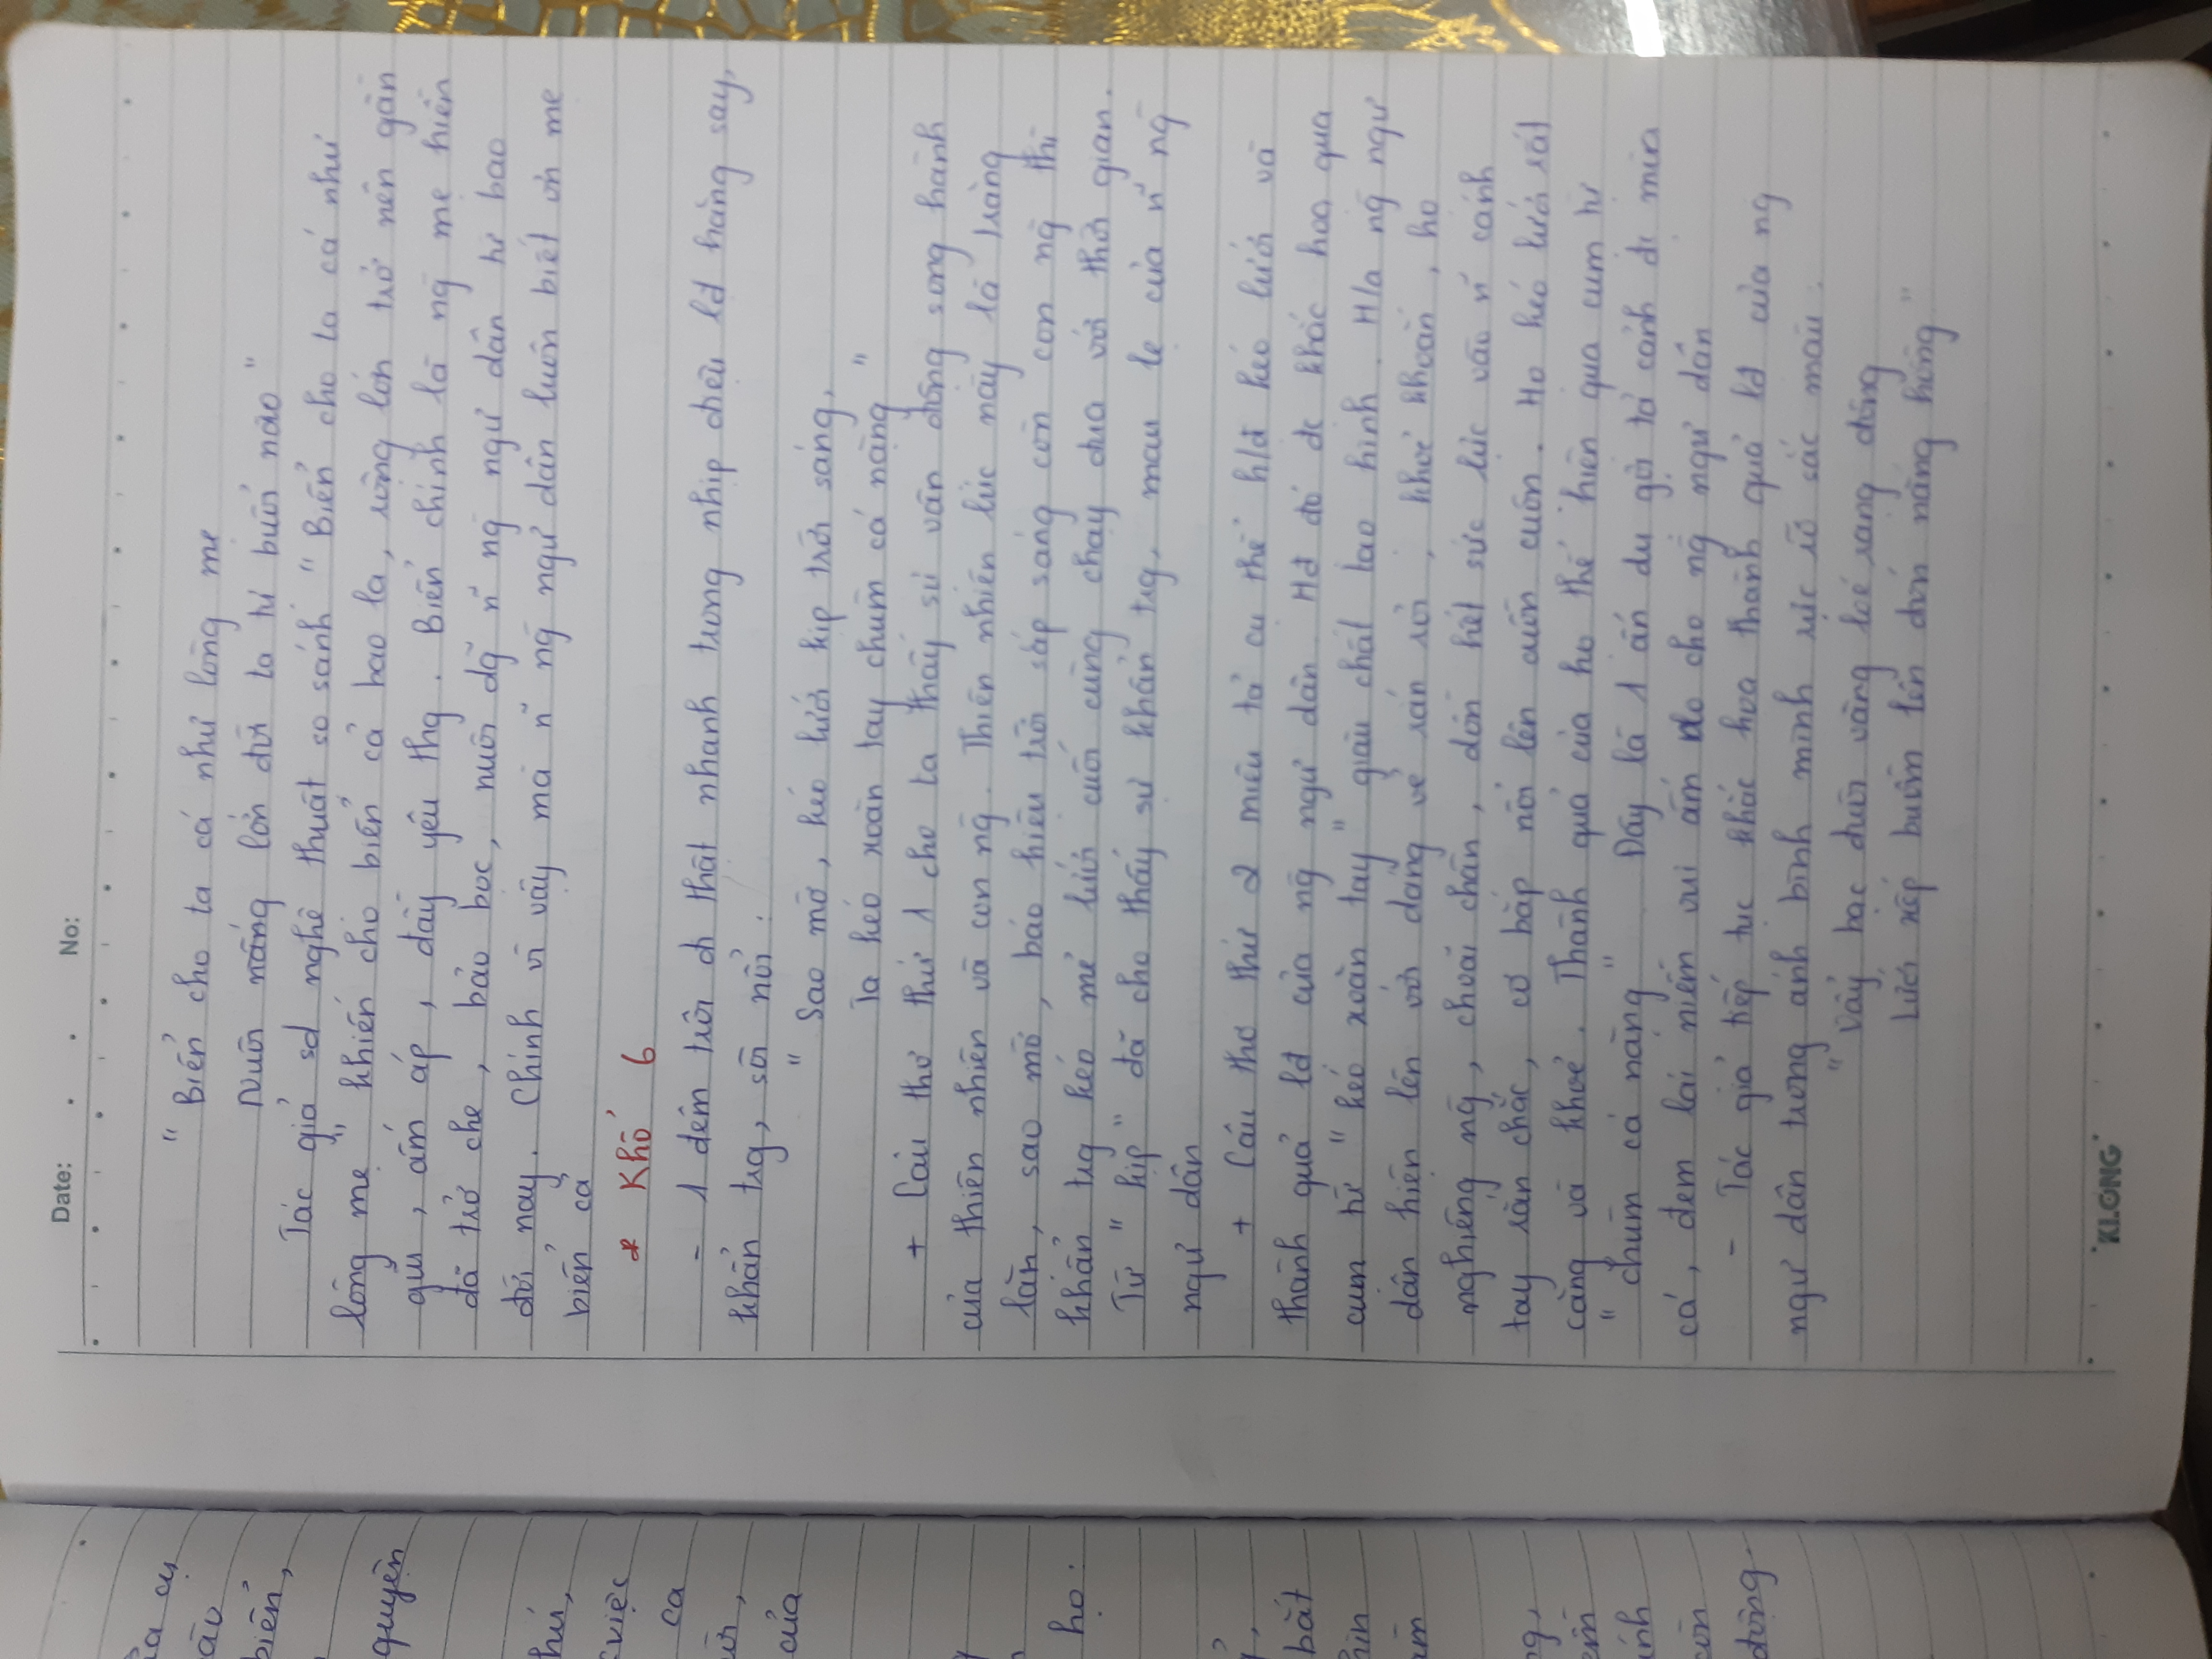 Date: . . No:
"Biển cho ta cá như lòng mẹ
Nuôi nấng lớn đời ta tự buổi nào"
Tác giả sd nghệ thuật so sánh "Biển cho ta cá như
lòng mẹ" khiến cho biển cả bao la, rộng lớn trở nên gần
gũi, ấm áp, đầy yêu thg. Biển chính là ng mẹ hiền
đã trở che, bảo bọc, nuôi dg n~ ng ngư dân từ bao
đời nay. Chính vì vậy mà n~ ng ngư dân luôn biết ơn mẹ
biển cả
* Khổ 6
- 1 đêm trôi đi thật nhanh trong nhịp điệu lđ hăng say,
khẩn trg, sôi nổi.
"Sao mờ, kéo lưới kịp trời sáng,
Ta kéo xoăn tay chùm cá nặng"
+ Câu thơ thứ 1 cho ta thấy sự vận động song hành
của thiên nhiên và con ng. Thiên nhiên lúc này là trăng
lặn, sao mờ, báo hiệu trời sắp sáng còn con ng thì
khẩn trg kéo mẻ lưới cuối cùng chạy đua với thời gian.
Từ "kịp" đã cho thấy sự khẩn trg, mau lẹ của n~ ng
ngư dân
+ Câu thơ thứ 2 miêu tả cụ thể h/đ kéo lưới và
thành quả lđ của ng ngư dân. Hđ đó đc khắc hoạ qua
cụm từ "kéo xoăn tay" giàu chất tạo hình. H/a ng ngư
dân hiện lên với dáng vẻ rắn rỏi, khoẻ khoắn, họ
nghiêng ng, choãi chân, dồn hết sức lực vào n~ cánh
tay rắn chắc, cơ bắp nổi lên cuồn cuộn. Họ kéo lưới rất
căng và khoẻ. Thành quả của họ thể hiện qua cụm từ
"chùm cá nặng" Đây là 1 ẩn dụ gợi tả cảnh đc mùa
cá, đem lại niềm vui ấm no cho ng ngư dân
- Tác giả tiếp tục khắc hoạ thành quả lđ của ng
ngư dân trong ánh bình minh rực rỡ sắc màu.
"Vảy bạc đuôi vàng loé rạng đông
Lưới xếp buồm lên đón nắng hồng"
KLONG
ủa cụ
biển,
quyện
việc
ca
của
họ.
bắt